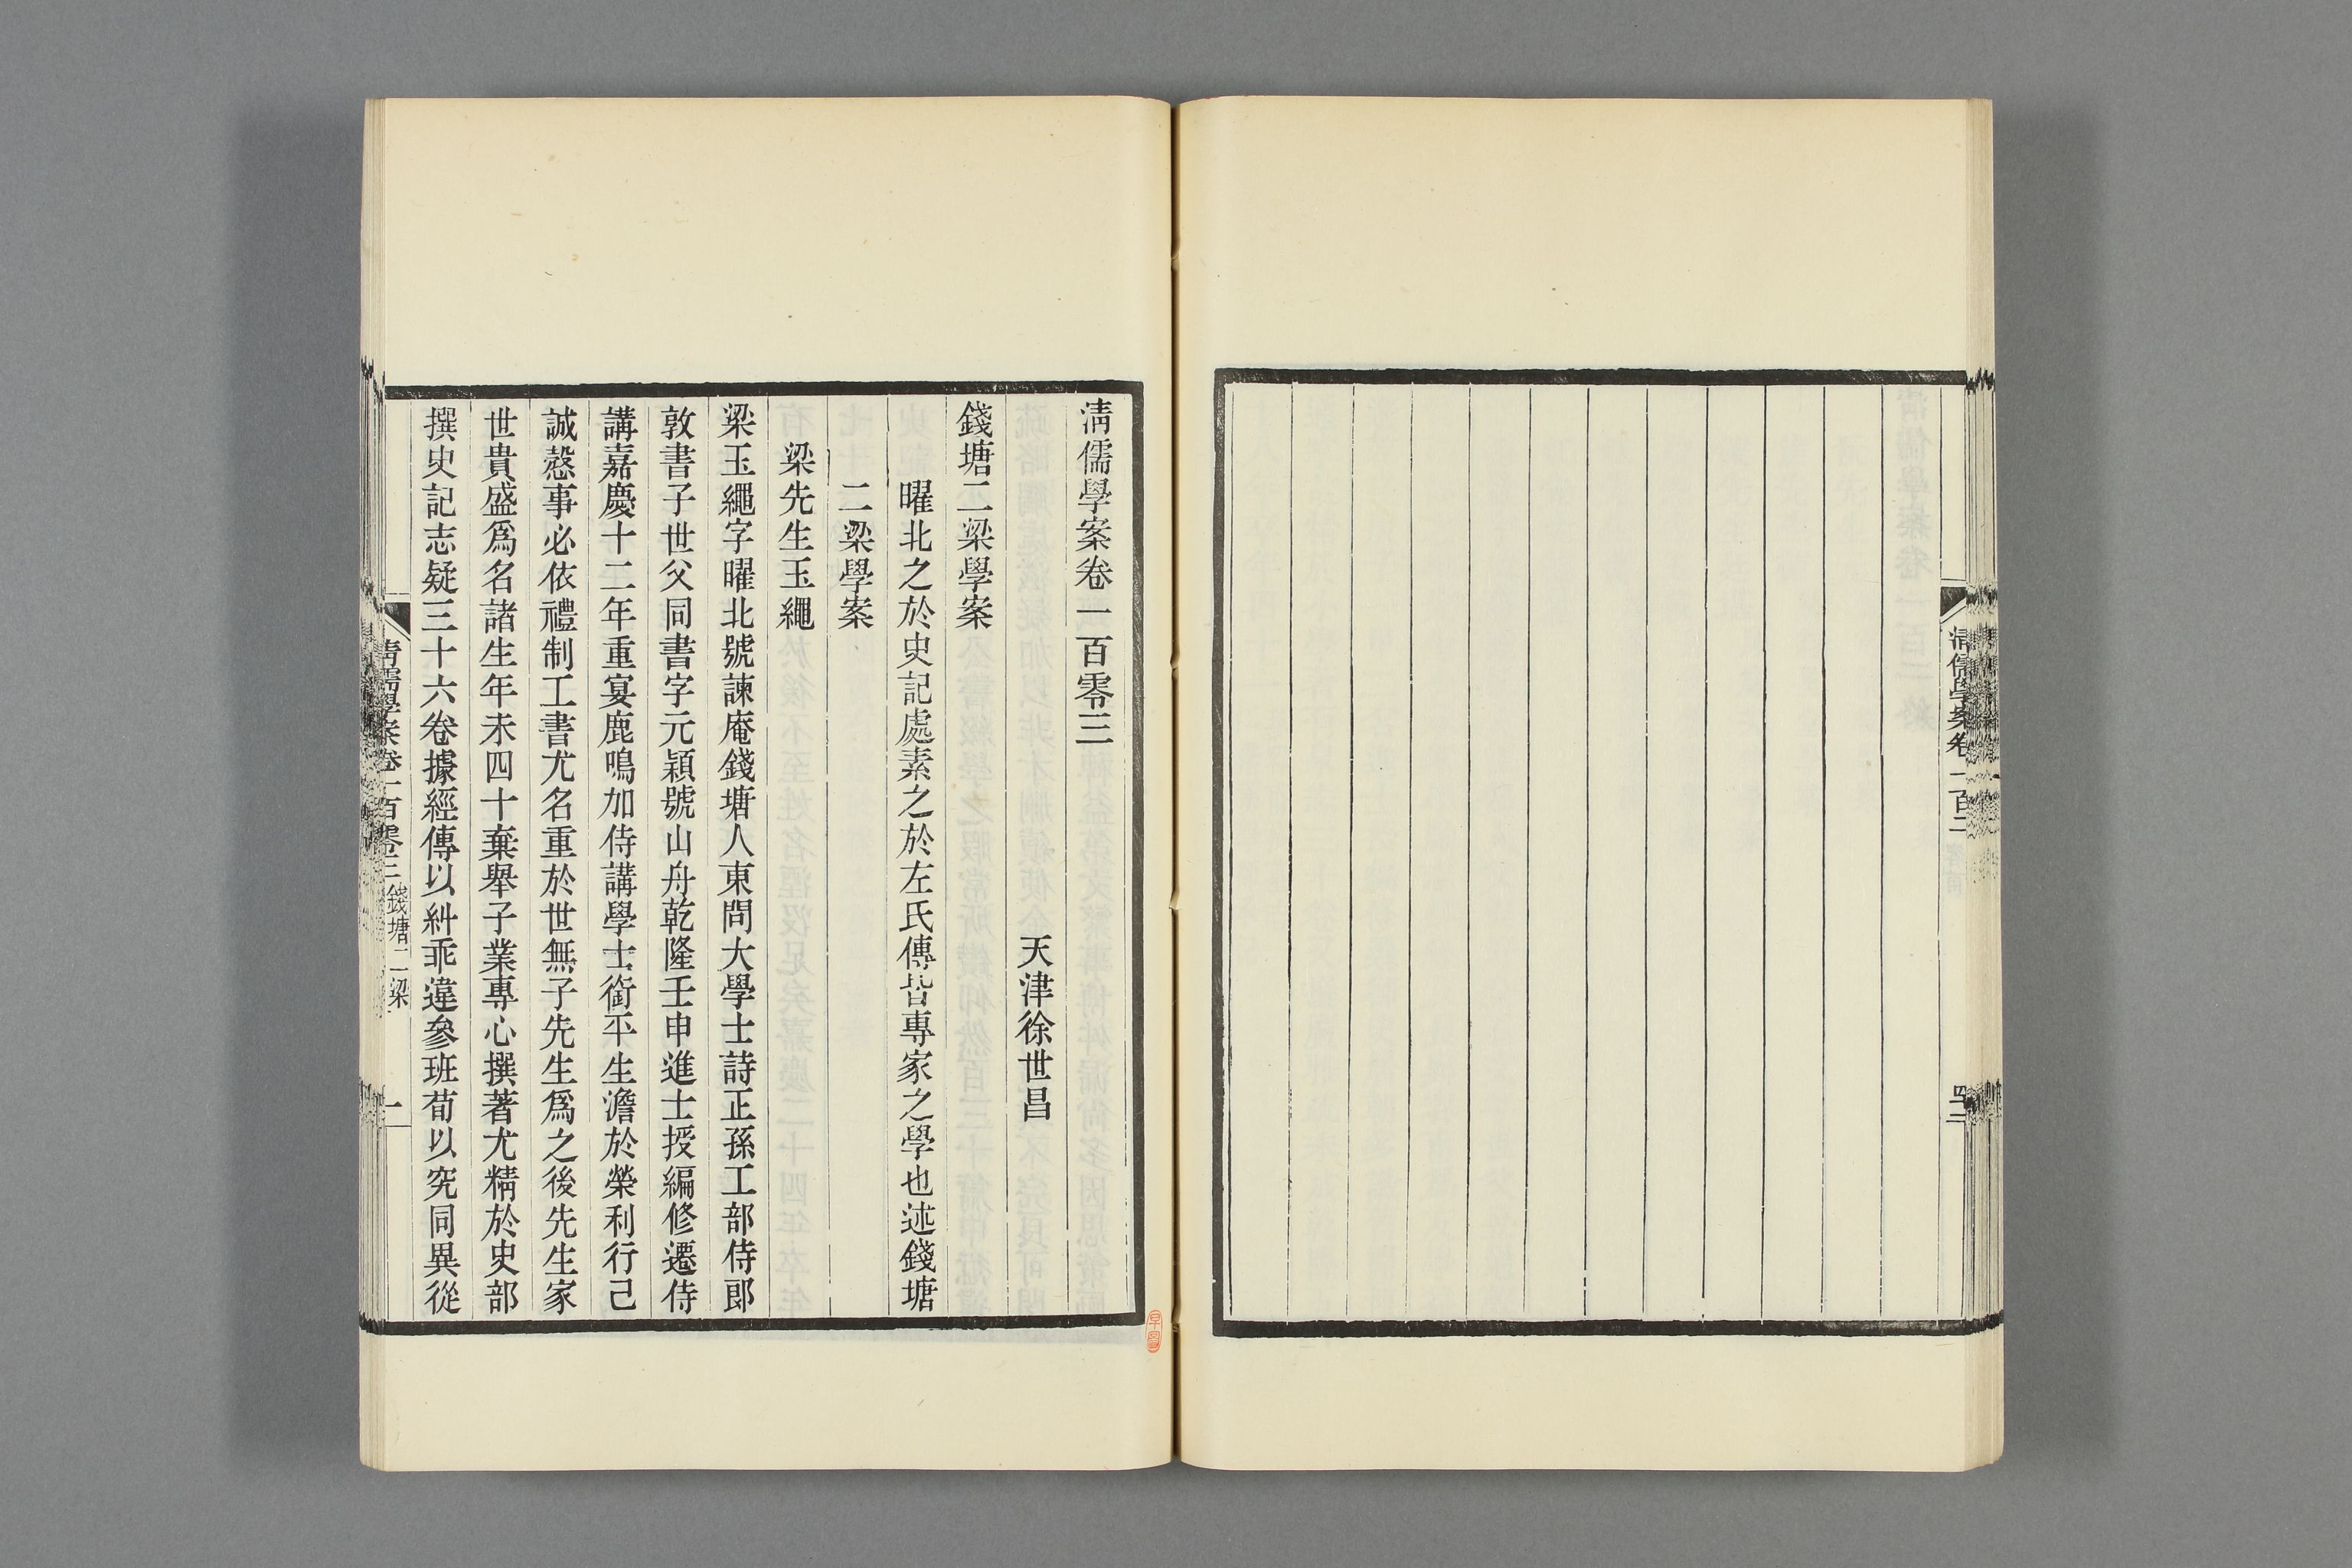 清儒學案卷一百二
四十二
清儒學案卷一百零三
天津徐世昌
錢塘二梁學案
曜北之於史記處素之於左氏傳皆專家之學也述錢塘
二梁學案
梁先生玉繩
梁玉繩字曜北號諫庵錢塘人東閣大學士詩正孫工部侍郎
敦書子世父同書字元穎號山舟乾隆壬申進士授編修遷侍
講嘉慶十二年重宴鹿鳴加侍講學士銜平生澹於榮利行己
誠愨事必依禮制工書尤名重於世無子先生爲之後先生家
世貴盛爲名諸生年未四十棄舉子業專心撰著尤精於史部
撰史記志疑三十六卷據經傳以糾乖違參班荀以究同異從
清儒學案卷一百零三 錢塘二梁 一